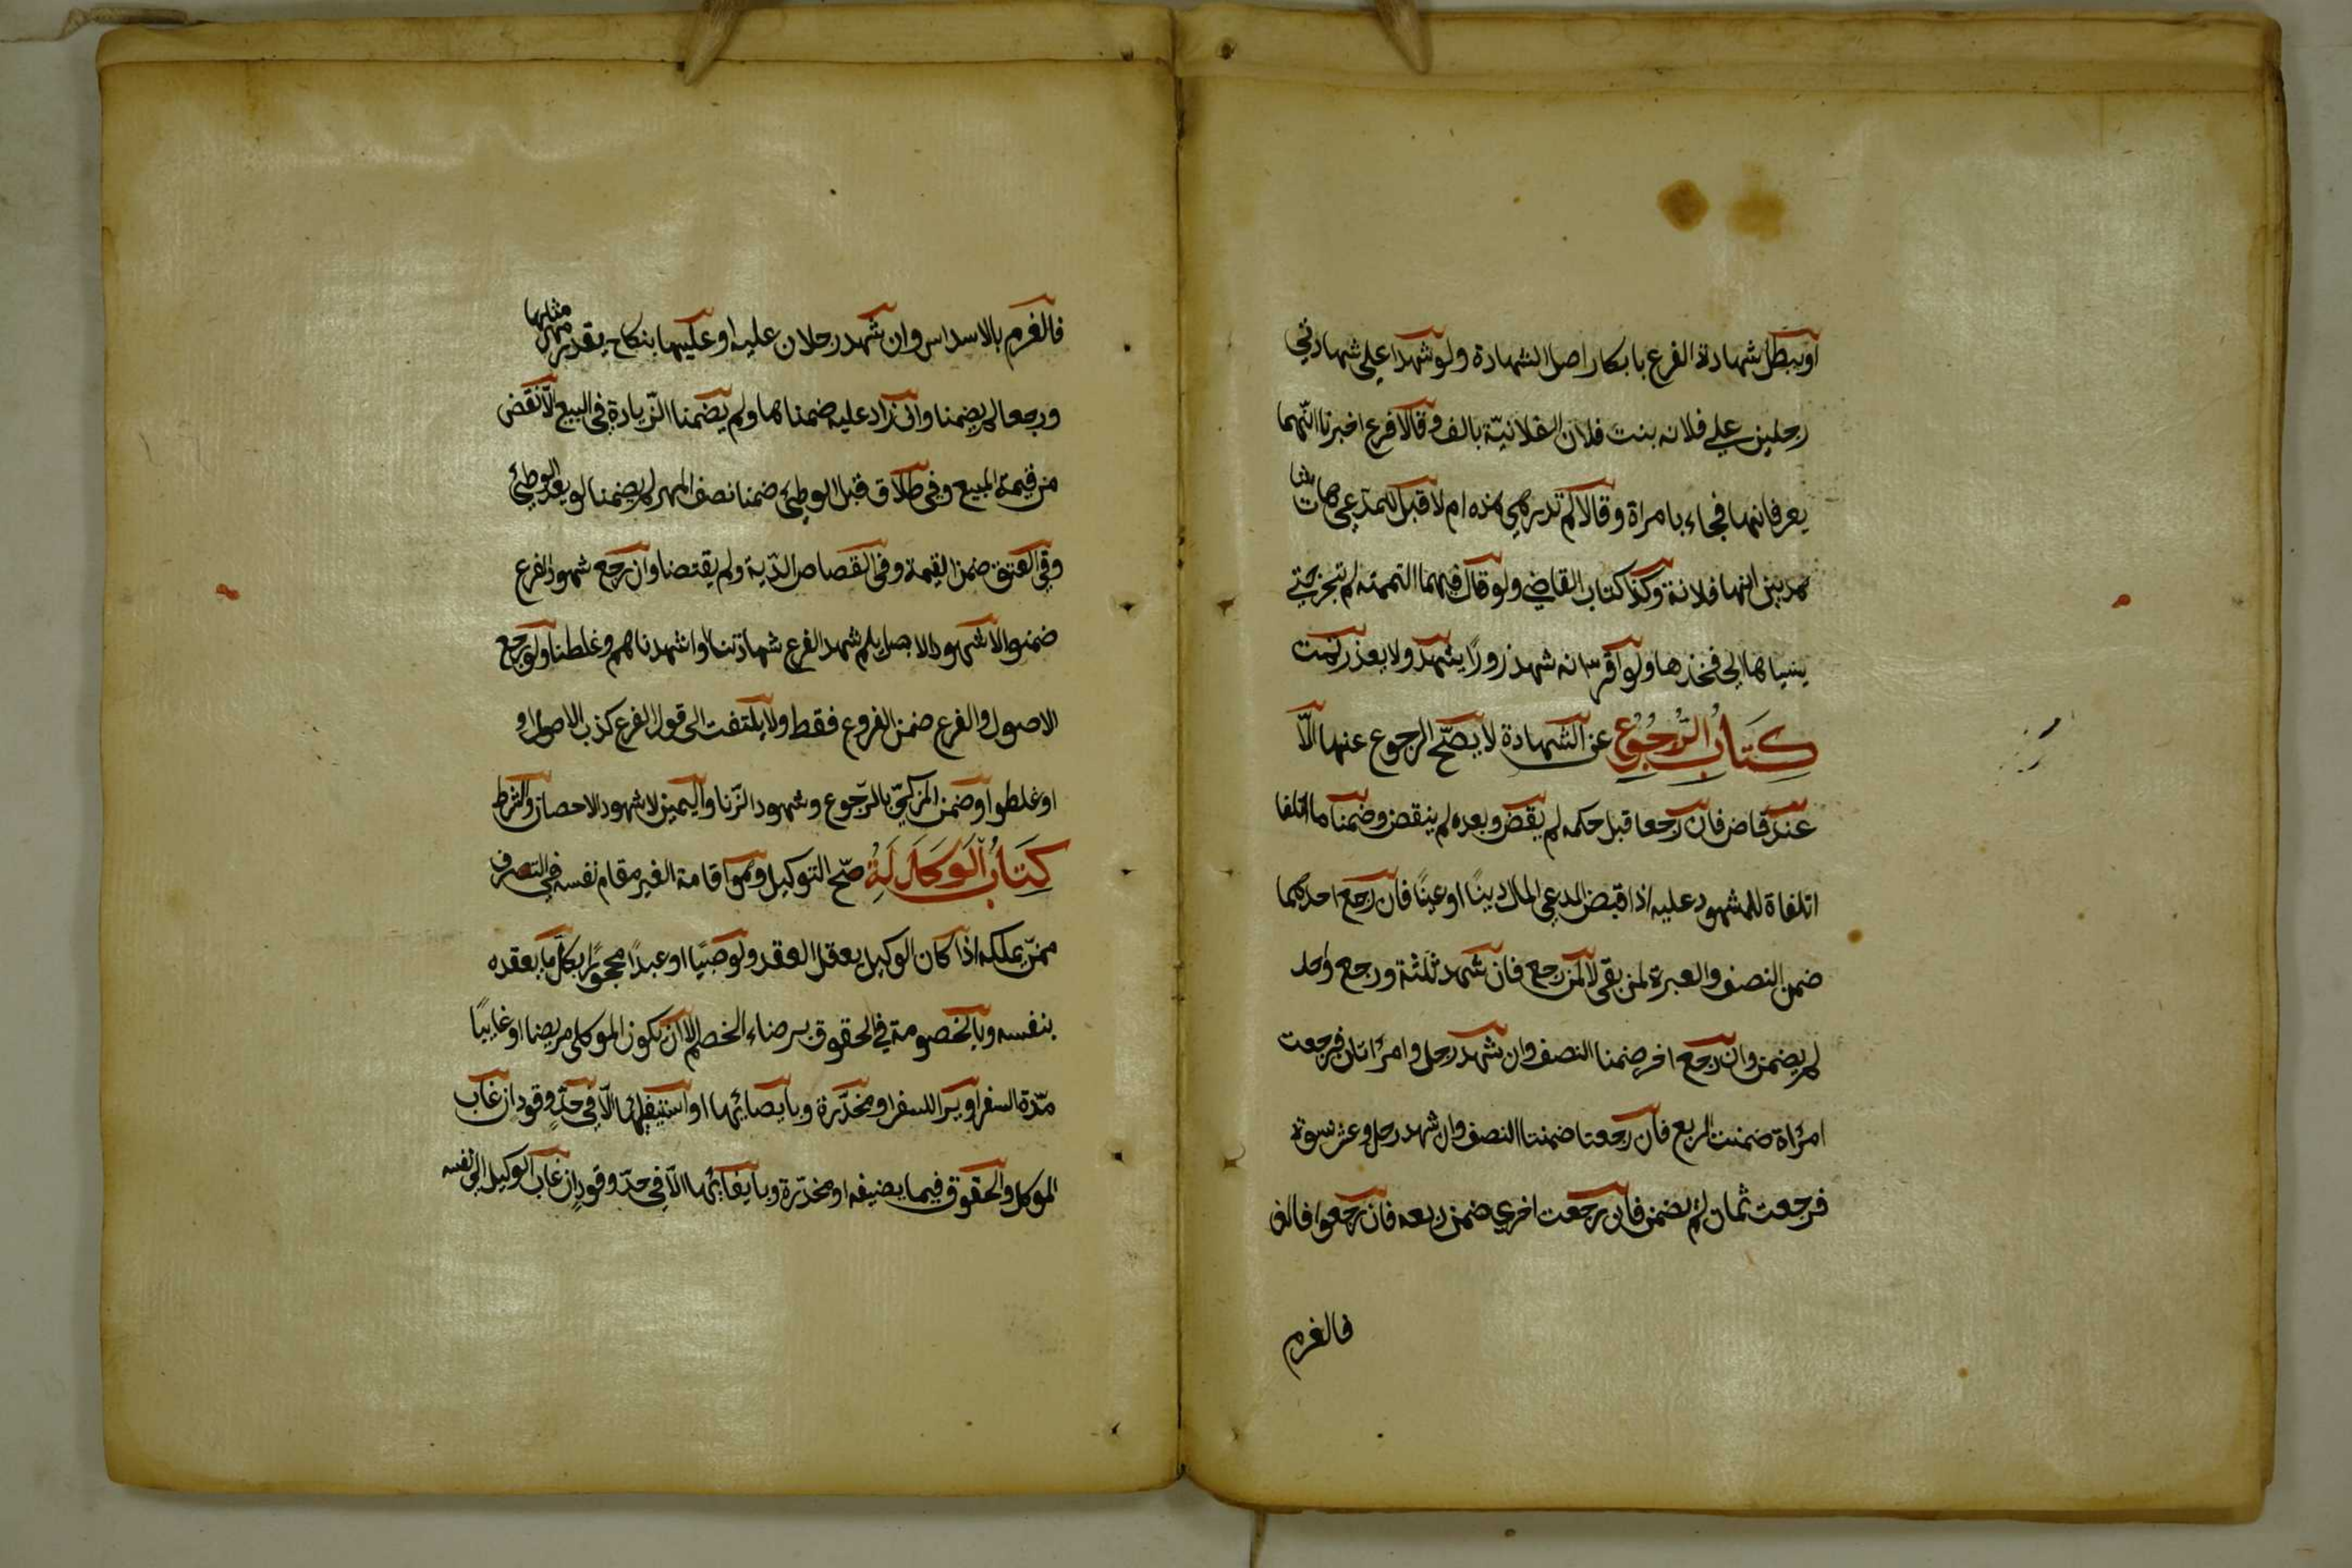 او يبطل شهادة الفرع بابكار اصل الشهادة ولو شهدا على شهادتي
رجلين على فلانه بنت فلان الفلانيّة بالف وقالا فرع اخبرنا انّهما
يعرفانها فجاء بامراة وقالا لم تدر هي هذه ام لا قبل للمدعى هات شاهدين
انها فلانة وكذا كتاب القاضي ولو قال فيهما التميميه لم تجز حتى
ينسباها الى فخذها ولو اقر انه شهد زورًا يشهد ولا يعذر تمت
كِتَابُ الرُّجُوعِ عن الشهادة لا يصّح الرجوع عنها الّا
عند قاض فان رجعا قبل حكمه لم يقض وبعده لم ينقض وضمنا ما اتلفا
اتلفاة للمشهود عليه اذا قبض المدعى المال دينًا او عينًا فان رجع احدهما
ضمن النصف والعبرة لمن بقى لا لمن رجع فان شهد ثلثة ورجع واحد
لم يضمن وان رجع اخر ضمنا النصف وان شهد رجل وامرأتان فرجعت
امرأة ضمنت الربع فان رجعتا ضمنتا النصف وان شهد رجل وعشر نسوة
فرجعت ثمان لم يضمن فان رجعت اخرى ضمن ربعه فان رجعوا فالغ
فالغرم
فالغرم بالاسداس وان شهد رجلان عليه او عليها بنكاح بقدر مهر مثلها
ورجعا لم يضمنا وان زاد عليه ضمناها ولم يضمنا الزّيادة في البيع الّا نقض
من قيمة المبيع وفي طلاق قبل الوطئ ضمنا نصف المهر لم يضمنا لو بعد الوطئ
وفي العتق ضمن القيمة وفي القصاص الدّية ولم يقتصا وان رجع شهود الفرع
ضمنوا لا شهود الاصل بلم شهد الفرع شهادتنا او اشهدناهم وغلطنا ولو رجع
الاصول والفرع ضمن الفروع فقط ولا يلتفت الى قول الفرع كذب الاصول او
او غلطوا وضمن المزكيّ بالرّجوع وشهود الزّنا واليمين لا شهود الاحصان والشرط
كِتَابُ الْوَكَالَةِ صّح التوكيل وهو اقامة الغير مقام نفسه في التصرف
ممّن يملكه اذا كان الوكيل يعقل العقد ولو صبيًا او عبدًا محجورًا بكلّ ما يعقده
بنفسه وبالخصومة في الحقوق برضاء الخصم الا ان يكون الموكل مريضا او غايبًا
مدّة السفر او يريد السفر او مخدّرة وبايصائها او استيفائها الّا في حدّ وقود ان غاب
الموكل والحقوق فيما يضيفه او مخدّرة وبايفائها الّا في حدّ وقود ان غاب الوكيل الى نفسه